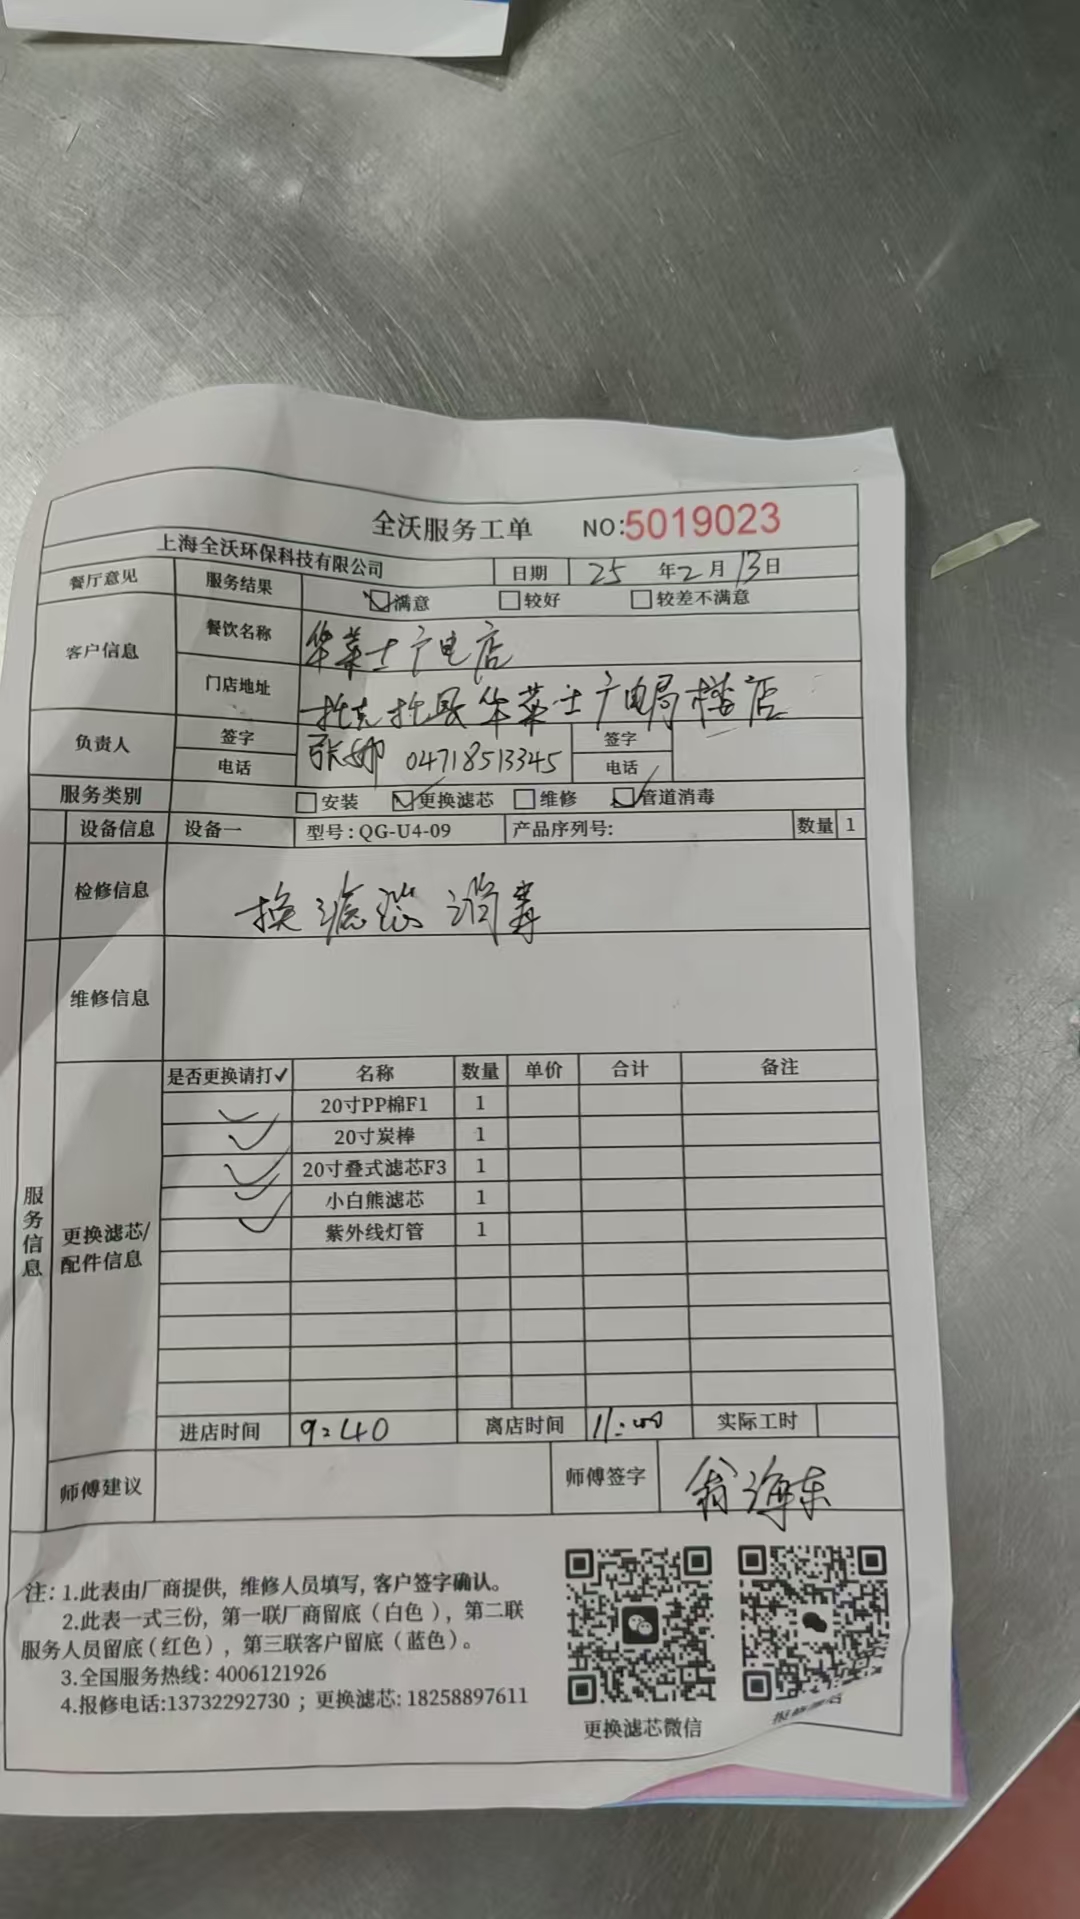 全沃服务工单 NO:5019023
上海全沃环保科技有限公司 日期 25 年2月13日
餐厅意见 服务结果 ☑满意 □较好 □较差不满意
客户信息 餐饮名称 华莱士广电店
门店地址 托克托县华莱士广电局楼店
负责人 签字 张娜 04718513345 签字
电话 电话
服务类别 □安装 ☑更换滤芯 □维修 ☑管道消毒
设备信息 设备一 型号:QG-U4-09 产品序列号: 数量 1
检修信息 换滤芯 消毒
维修信息
服务信息
更换滤芯/配件信息
是否更换请打✓ 名称 数量 单价 合计 备注
✓ 20寸PP棉F1 1
✓ 20寸炭棒 1
✓ 20寸叠式滤芯F3 1
✓ 小白熊滤芯 1
✓ 紫外线灯管 1
进店时间 9:40 离店时间 11:00 实际工时
师傅建议 师傅签字 翁海东
注: 1.此表由厂商提供, 维修人员填写, 客户签字确认。
2.此表一式三份, 第一联厂商留底(白色), 第二联
服务人员留底(红色), 第三联客户留底(蓝色)。
3.全国服务热线: 4006121926
4.报修电话:13732292730 ; 更换滤芯: 18258897611
更换滤芯微信